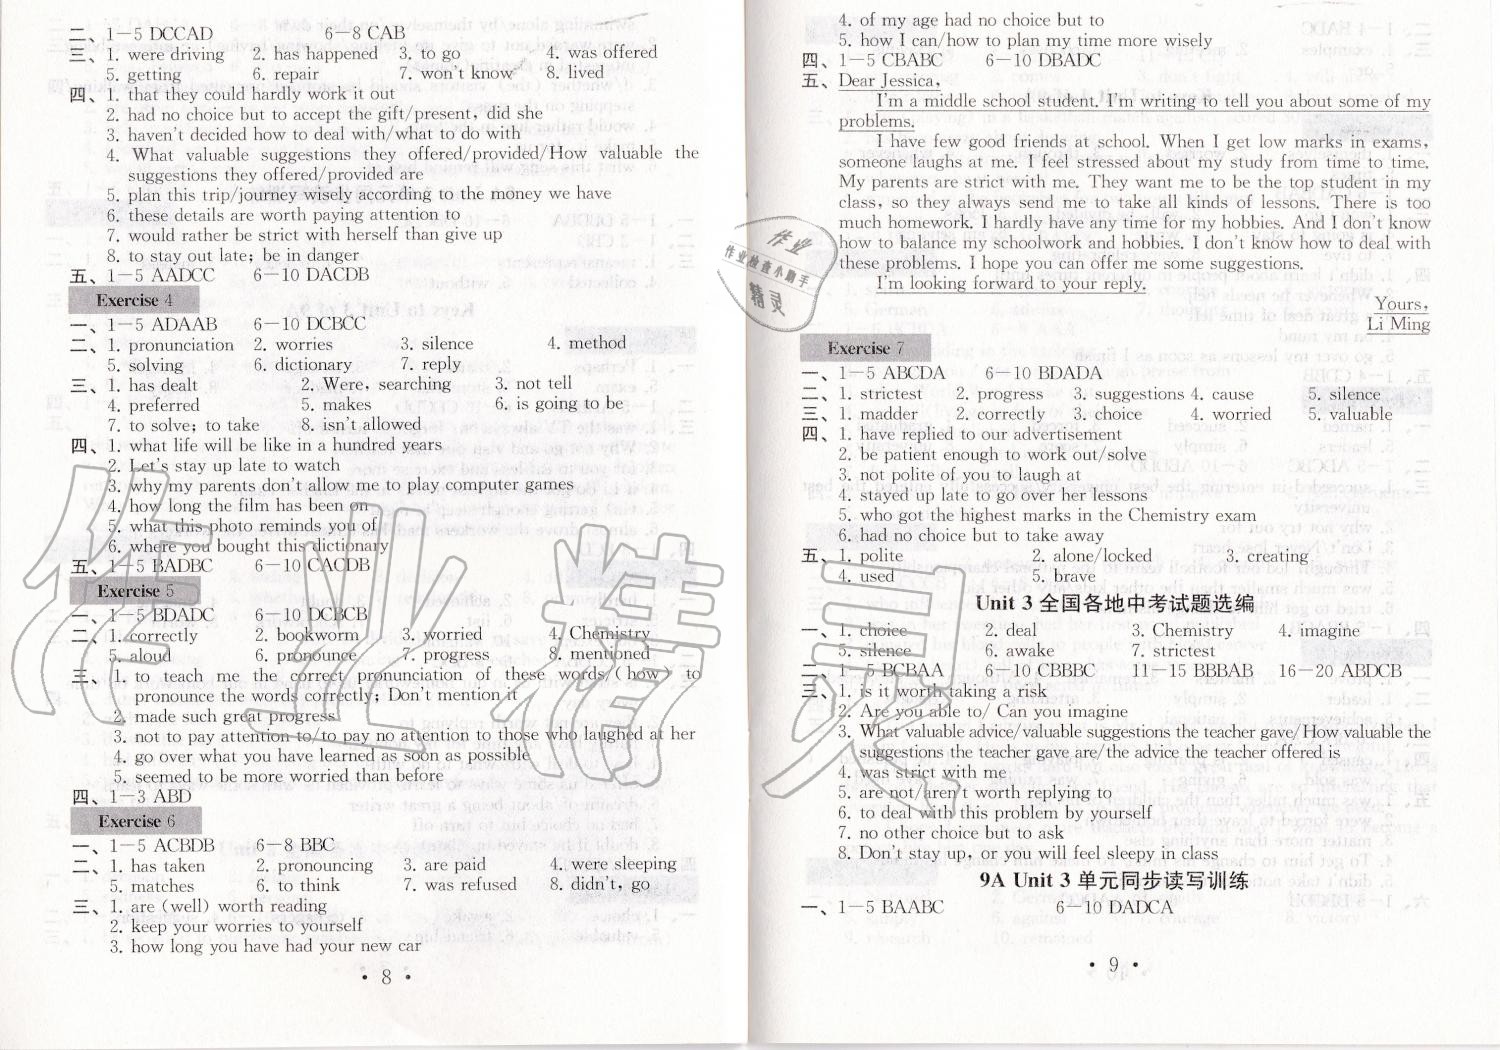 二、1－5 DCCAD 6－8 CAB
三、1. were driving 2. has happened 3. to go 4. was offered
5. getting 6. repair 7. won't know 8. lived
四、1. that they could hardly work it out
2. had no choice but to accept the gift/present, did she
3. haven't decided how to deal with/what to do with
4. What valuable suggestions they offered/provided/How valuable the
suggestions they offered/provided are
5. plan this trip/journey wisely according to the money we have
6. these details are worth paying attention to
7. would rather be strict with herself than give up
8. to stay out late; be in danger
五、1－5 AADCC 6－10 DACDB
Exercise 4
一、1－5 ADAAB 6－10 DCBCC
二、1. pronunciation 2. worries 3. silence 4. method
5. solving 6. dictionary 7. reply
三、1. has dealt 2. Were, searching 3. not tell
4. preferred 5. makes 6. is going to be
7. to solve; to take 8. isn't allowed
四、1. what life will be like in a hundred years
2. Let's stay up late to watch
3. why my parents don't allow me to play computer games
4. how long the film has been on
5. what this photo reminds you of
6. where you bought this dictionary
五、1－5 BADBC 6－10 CACDB
Exercise 5
一、1－5 BDADC 6－10 DCBCB
二、1. correctly 2. bookworm 3. worried 4. Chemistry
5. aloud 6. pronounce 7. progress 8. mentioned
三、1. to teach me the correct pronunciation of these words/(how) to
pronounce the words correctly; Don't mention it
2. made such great progress
3. not to pay attention to/to pay no attention to those who laughed at her
4. go over what you have learned as soon as possible
5. seemed to be more worried than before
四、1－3 ABD
Exercise 6
一、1－5 ACBDB 6－8 BBC
二、1. has taken 2. pronouncing 3. are paid 4. were sleeping
5. matches 6. to think 7. was refused 8. didn't, go
三、1. are (well) worth reading
2. keep your worries to yourself
3. how long you have had your new car
• 8 •
4. of my age had no choice but to
5. how I can/how to plan my time more wisely
四、1－5 CBABC 6－10 DBADC
五、Dear Jessica,
I'm a middle school student. I'm writing to tell you about some of my
problems.
I have few good friends at school. When I get low marks in exams,
someone laughs at me. I feel stressed about my study from time to time.
My parents are strict with me. They want me to be the top student in my
class, so they always send me to take all kinds of lessons. There is too
much homework. I hardly have any time for my hobbies. And I don't know
how to balance my schoolwork and hobbies. I don't know how to deal with
these problems. I hope you can offer me some suggestions.
I'm looking forward to your reply.
Yours,
Li Ming
Exercise 7
一、1－5 ABCDA 6－10 BDADA
二、1. strictest 2. progress 3. suggestions 4. cause 5. silence
三、1. madder 2. correctly 3. choice 4. worried 5. valuable
四、1. have replied to our advertisement
2. be patient enough to work out/solve
3. not polite of you to laugh at
4. stayed up late to go over her lessons
5. who got the highest marks in the Chemistry exam
6. had no choice but to take away
五、1. polite 2. alone/locked 3. creating
4. used 5. brave
Unit 3 全国各地中考试题选编
一、1. choice 2. deal 3. Chemistry 4. imagine
5. silence 6. awake 7. strictest
二、1－5 BCBAA 6－10 CBBBC 11－15 BBBAB 16－20 ABDCB
三、1. is it worth taking a risk
2. Are you able to/ Can you imagine
3. What valuable advice/valuable suggestions the teacher gave/How valuable the
suggestions the teacher gave are/the advice the teacher offered is
4. was strict with me
5. are not/aren't worth replying to
6. to deal with this problem by yourself
7. no other choice but to ask
8. Don't stay up, or you will feel sleepy in class
9A Unit 3 单元同步读写训练
一、1－5 BAABC 6－10 DADCA
• 9 •
作业
作业检查小助手
精灵
作业精灵